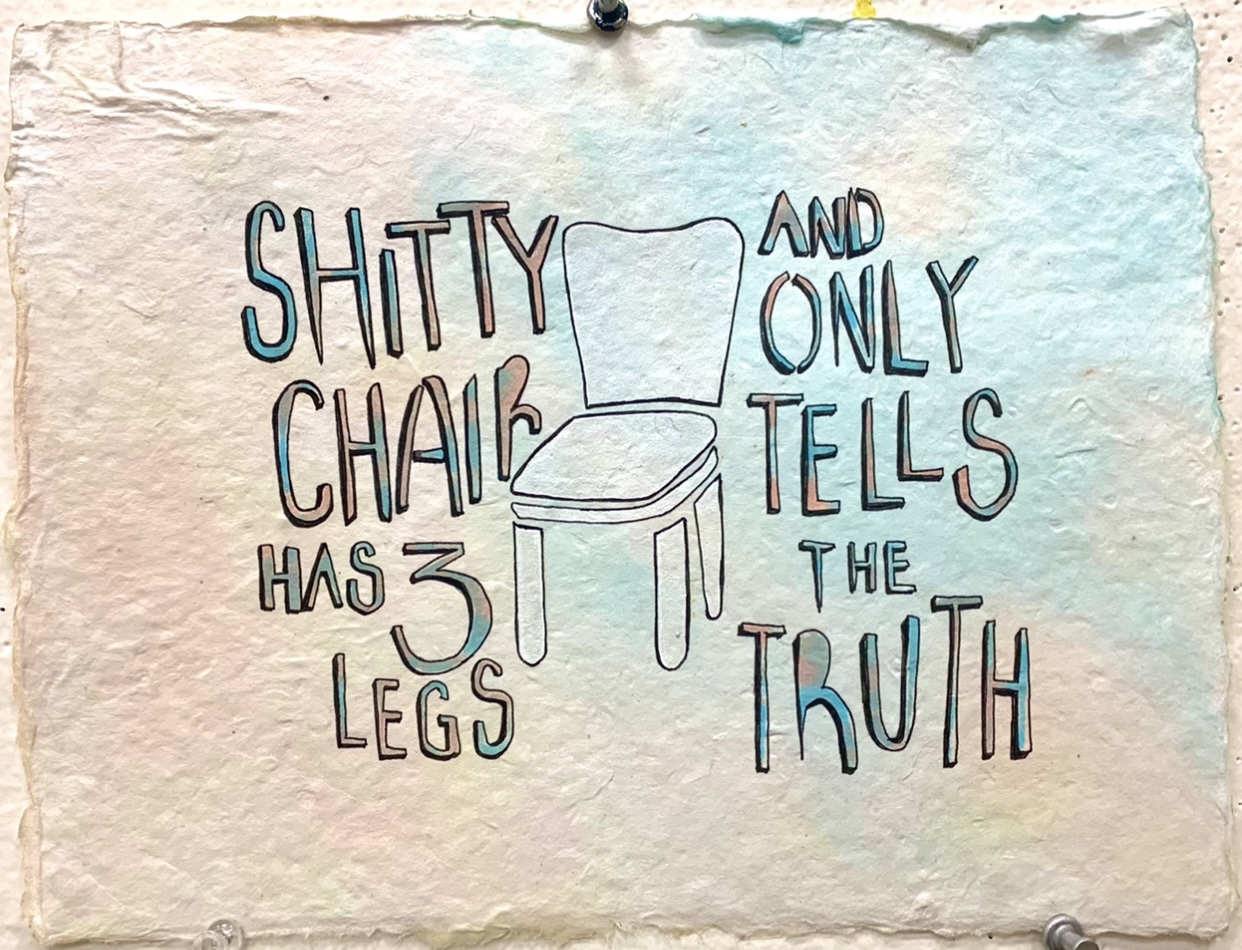 SHITTY
CHAIR
HAS 3
LEGS
AND
ONLY
TELLS
THE
TRUTH